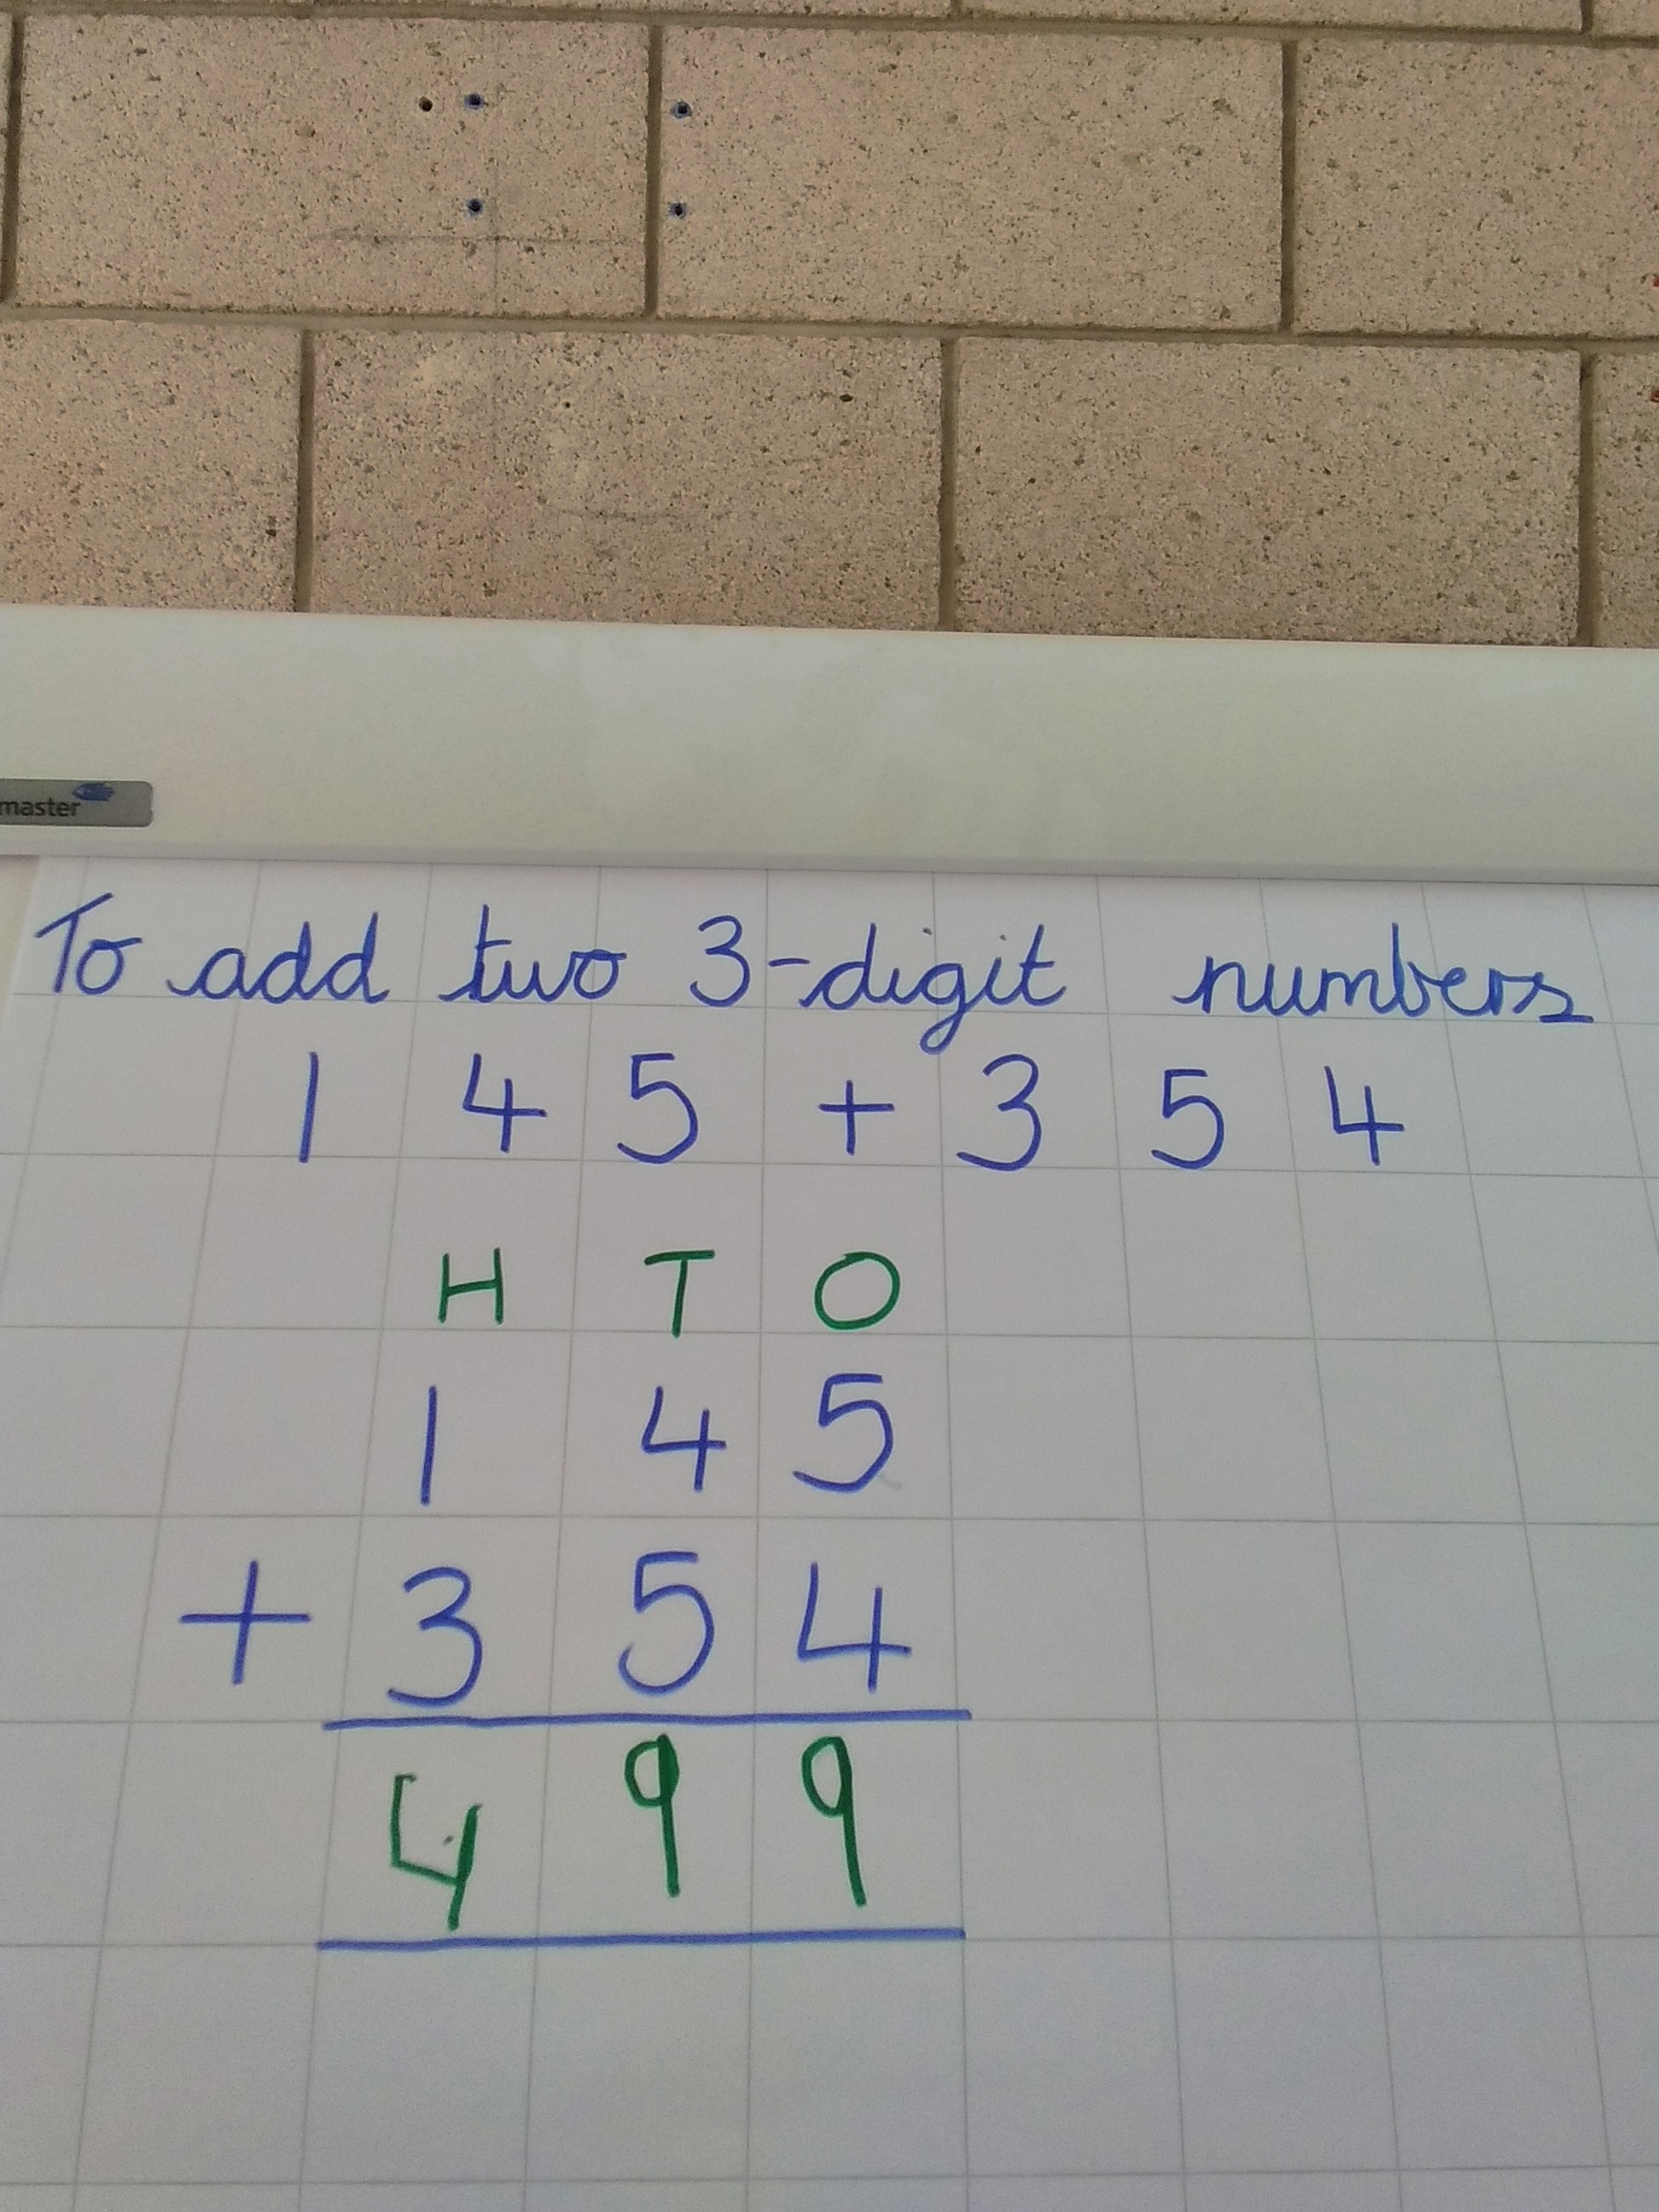 master
To add two 3-digit numbers
1 4 5 + 3 5 4
H T O
1 4 5
+ 3 5 4
4 9 9